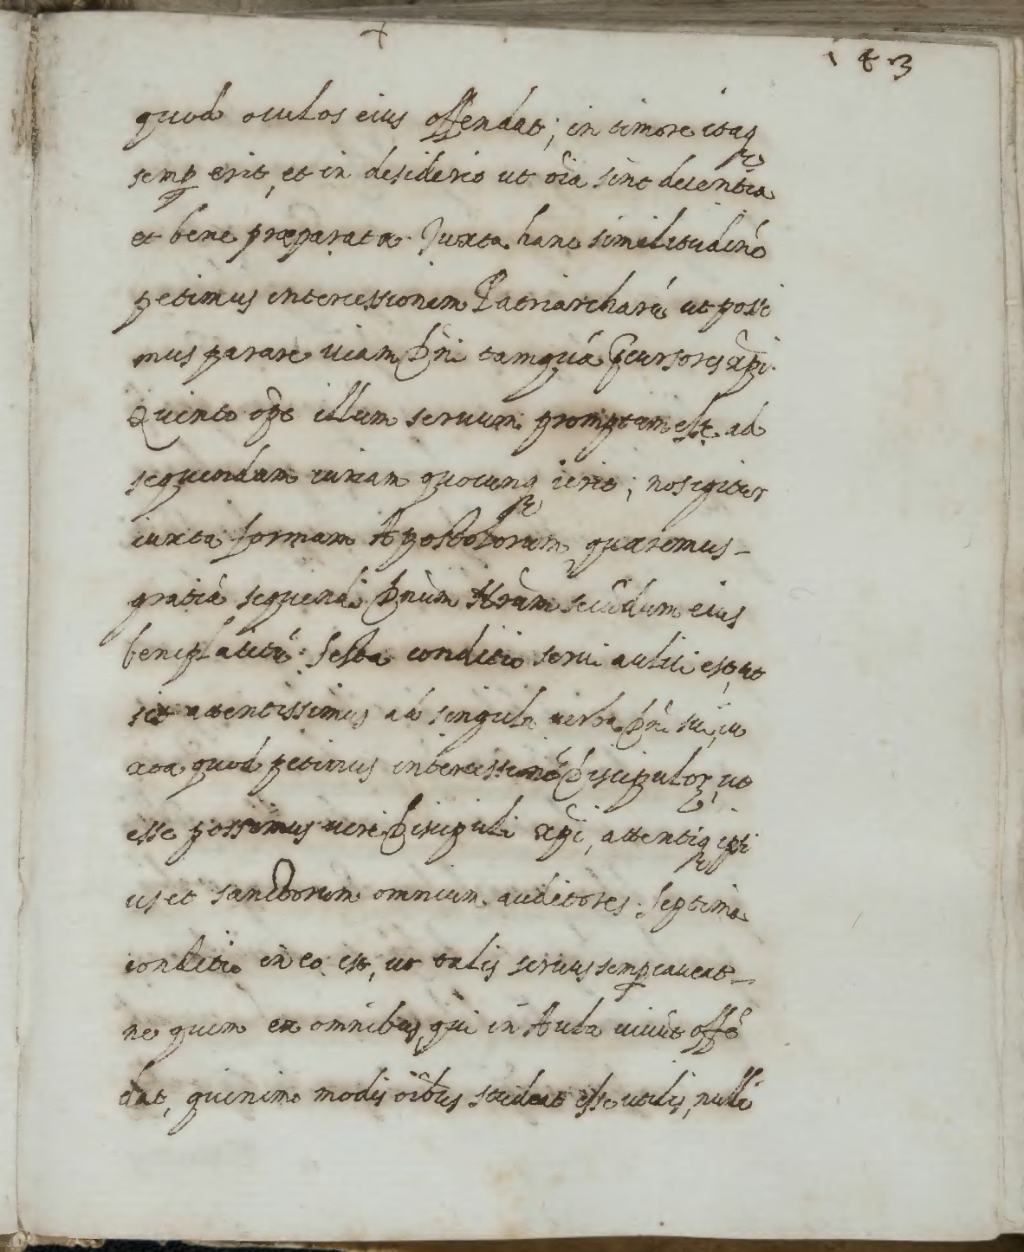 +
183
quod oculos eius offendat; in timore itaq3
semp erit, et in desiderio ut oı̃a sint decentia
et bene præparata. Juxta hanc similitudinẽ
petimus intercessionem Patriarcharũ ut possi
mus parare uiam Dñi tamquã p̃cursores xp̃i.
Quinto opt̃ illum seruum promptum esse ad
sequendam curiam quocunq3 ierit; nos igitur
iuxta formam Apostolorum, quæremus
gratiã sequendi Dñum Nr̃um secũdum eius
beneplacitũ. Sesta conditio serui aulici est, ut
sit attentissimus ad singula uerba Dñi sui, iu
xta quod petimus intercessionẽ Discipuloꝝ, ut
esse possimus ueri Discipuli xp̃i, attentiq3 ipsi
us et sanctorum omnium auditores. Septima
conditio in eo est, ut talis seruus semp caueat
ne quem ex omnibus, qui in Aula uiuũt offẽ
dat, quinimo modis oı̃bus studeat esse utilis, nulli